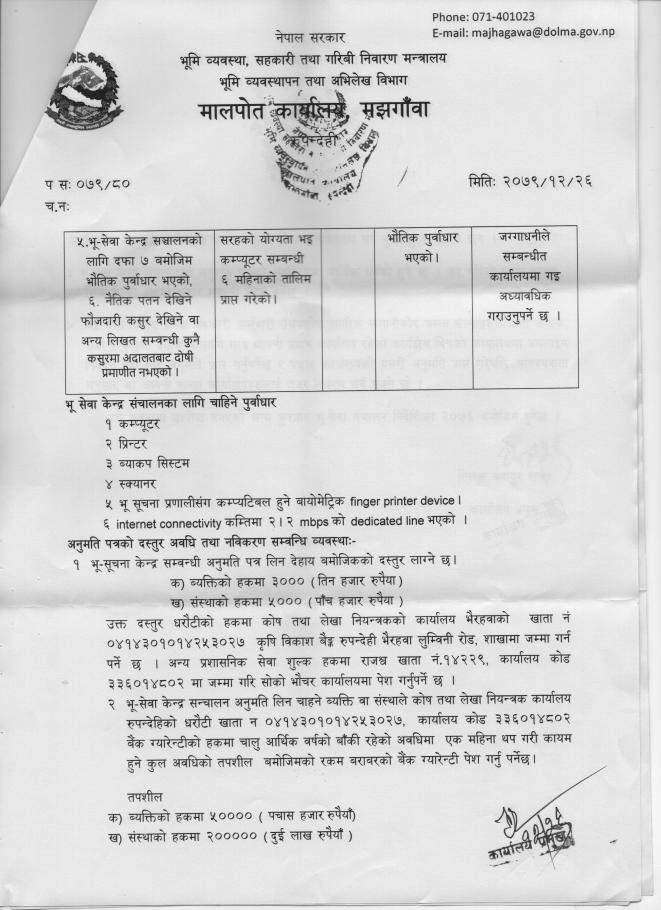 Phone: 071-401023
E-mail: majhagawa@dolma.gov.np
नेपाल सरकार
भूमि व्यवस्था, सहकारी तथा गरिबी निवारण मन्त्रालय
भूमि व्यवस्थापन तथा अभिलेख विभाग
मालपोत कार्यालय, मझगाँवा
रुपन्देही
प सः ०७९/८०
मितिः २०७९/१२/२६
च.नः
५.भू-सेवा केन्द्र सञ्चालनको
लागि दफा ७ बमोजिम
भौतिक पुर्वाधार भएको,
६. नैतिक पतन देखिने
फौजदारी कसुर देखिने वा
अन्य लिखत सम्बन्धी कुनै
कसुरमा अदालतबाट दोषी
प्रमाणीत नभएको ।
सरहको योग्यता भइ
कम्प्यूटर सम्बन्धी
६ महिनाको तालिम
प्राप्त गरेको।
भौतिक पुर्वाधार
भएको।
जग्गाधनीले
सम्बन्धीत
कार्यालयमा गइ
अध्यावधिक
गराउनुपर्ने छ ।
भू सेवा केन्द्र संचालनका लागि चाहिने पुर्वाधार
१ कम्प्यूटर
२ प्रिन्टर
३ ब्याकप सिस्टम
४ स्क्यानर
५ भू सूचना प्रणालीसंग कम्प्यटिबल हुने बायोमेट्रिक finger printer device ।
६ internet connectivity कम्तिमा २। २ mbps को dedicated line भएको ।
अनुमति पत्रको दस्तुर अवधि तथा नविकरण सम्बन्धि व्यवस्थाः-
१ भू-सूचना केन्द्र सम्बन्धी अनुमति पत्र लिन देहाय बमोजिकको दस्तुर लाग्ने छ।
क) ब्यक्तिको हकमा ३००० ( तिन हजार रुपैया )
ख) संस्थाको हकमा ५००० ( पाँच हजार रुपैया )
उक्त दस्तुर धरौटीको हकमा कोष तथा लेखा नियन्त्रकको कार्यालय भैरहवाको खाता नं
०४१४३०१०१४२५३०२७ कृषि विकाश बैङ्क रुपन्देही भैरहवा लुम्विनी रोड, शाखामा जम्मा गर्न
पर्ने छ । अन्य प्रशासनिक सेवा शुल्क हकमा राजश्व खाता नं.१४२२९, कार्यालय कोड
३३६०१४८०२ मा जम्मा गरि सोको भौचर कार्यालयमा पेश गर्नुपर्ने छ ।
२ भू-सेवा केन्द्र सन्चालन अनुमति लिन चाहने ब्यक्ति वा संस्थाले कोष तथा लेखा नियन्त्रक कार्यालय
रुपन्देहिको धरौटी खाता न ०४१४३०१०१४२५३०२७, कार्यालय कोड ३३६०१४८०२
बैंक ग्यारेन्टीको हकमा चालु आर्थिक वर्षको बाँकी रहेको अवधिमा एक महिना थप गरी कायम
हुने कुल अवधिको तपशील बमोजिमको रकम बराबरको बैंक ग्यारेन्टी पेश गर्नु पर्नेछ।
तपशील
क) ब्यक्तिको हकमा ५०००० ( पचास हजार रुपैयाँ)
ख) संस्थाको हकमा २००००० ( दुई लाख रुपैयाँ )
कार्यालय प्रमुख